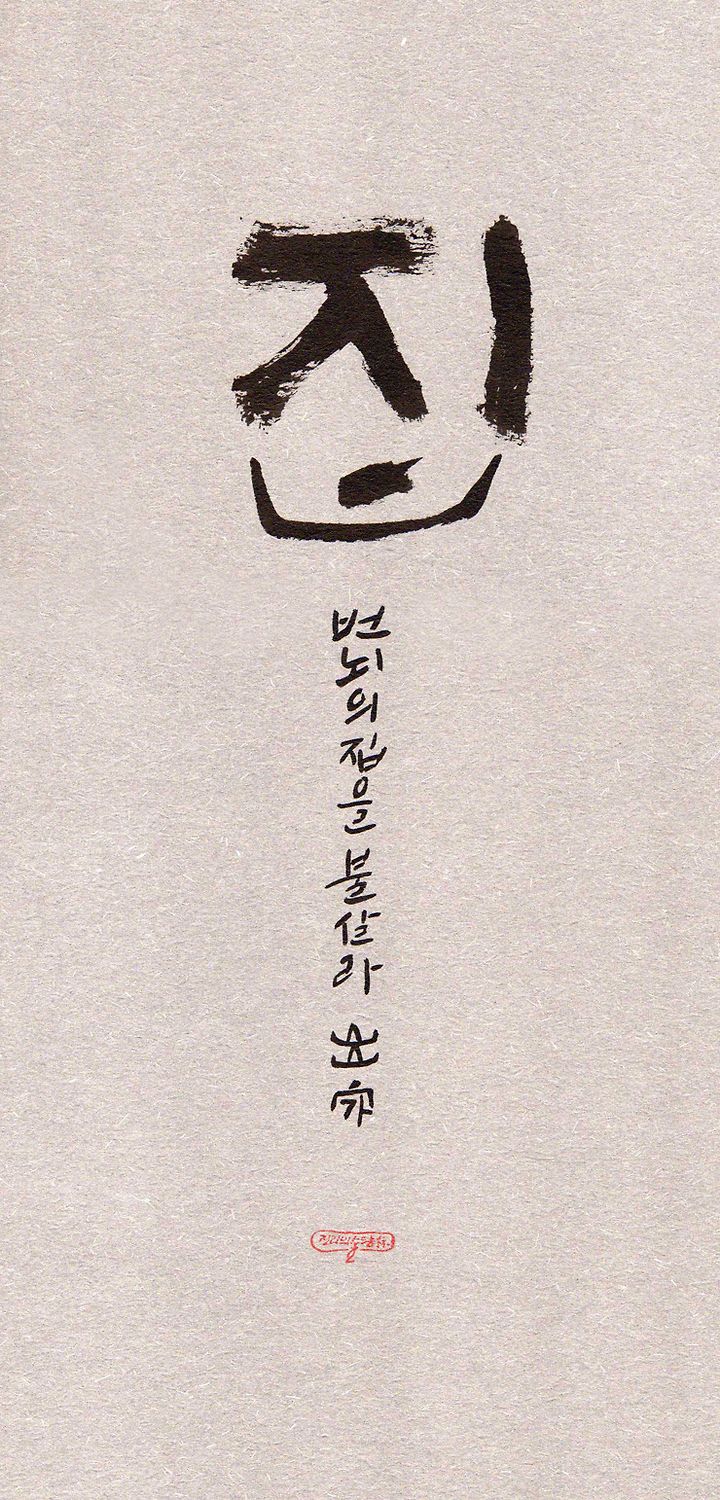 집
번뇌의집을 불살라 出家